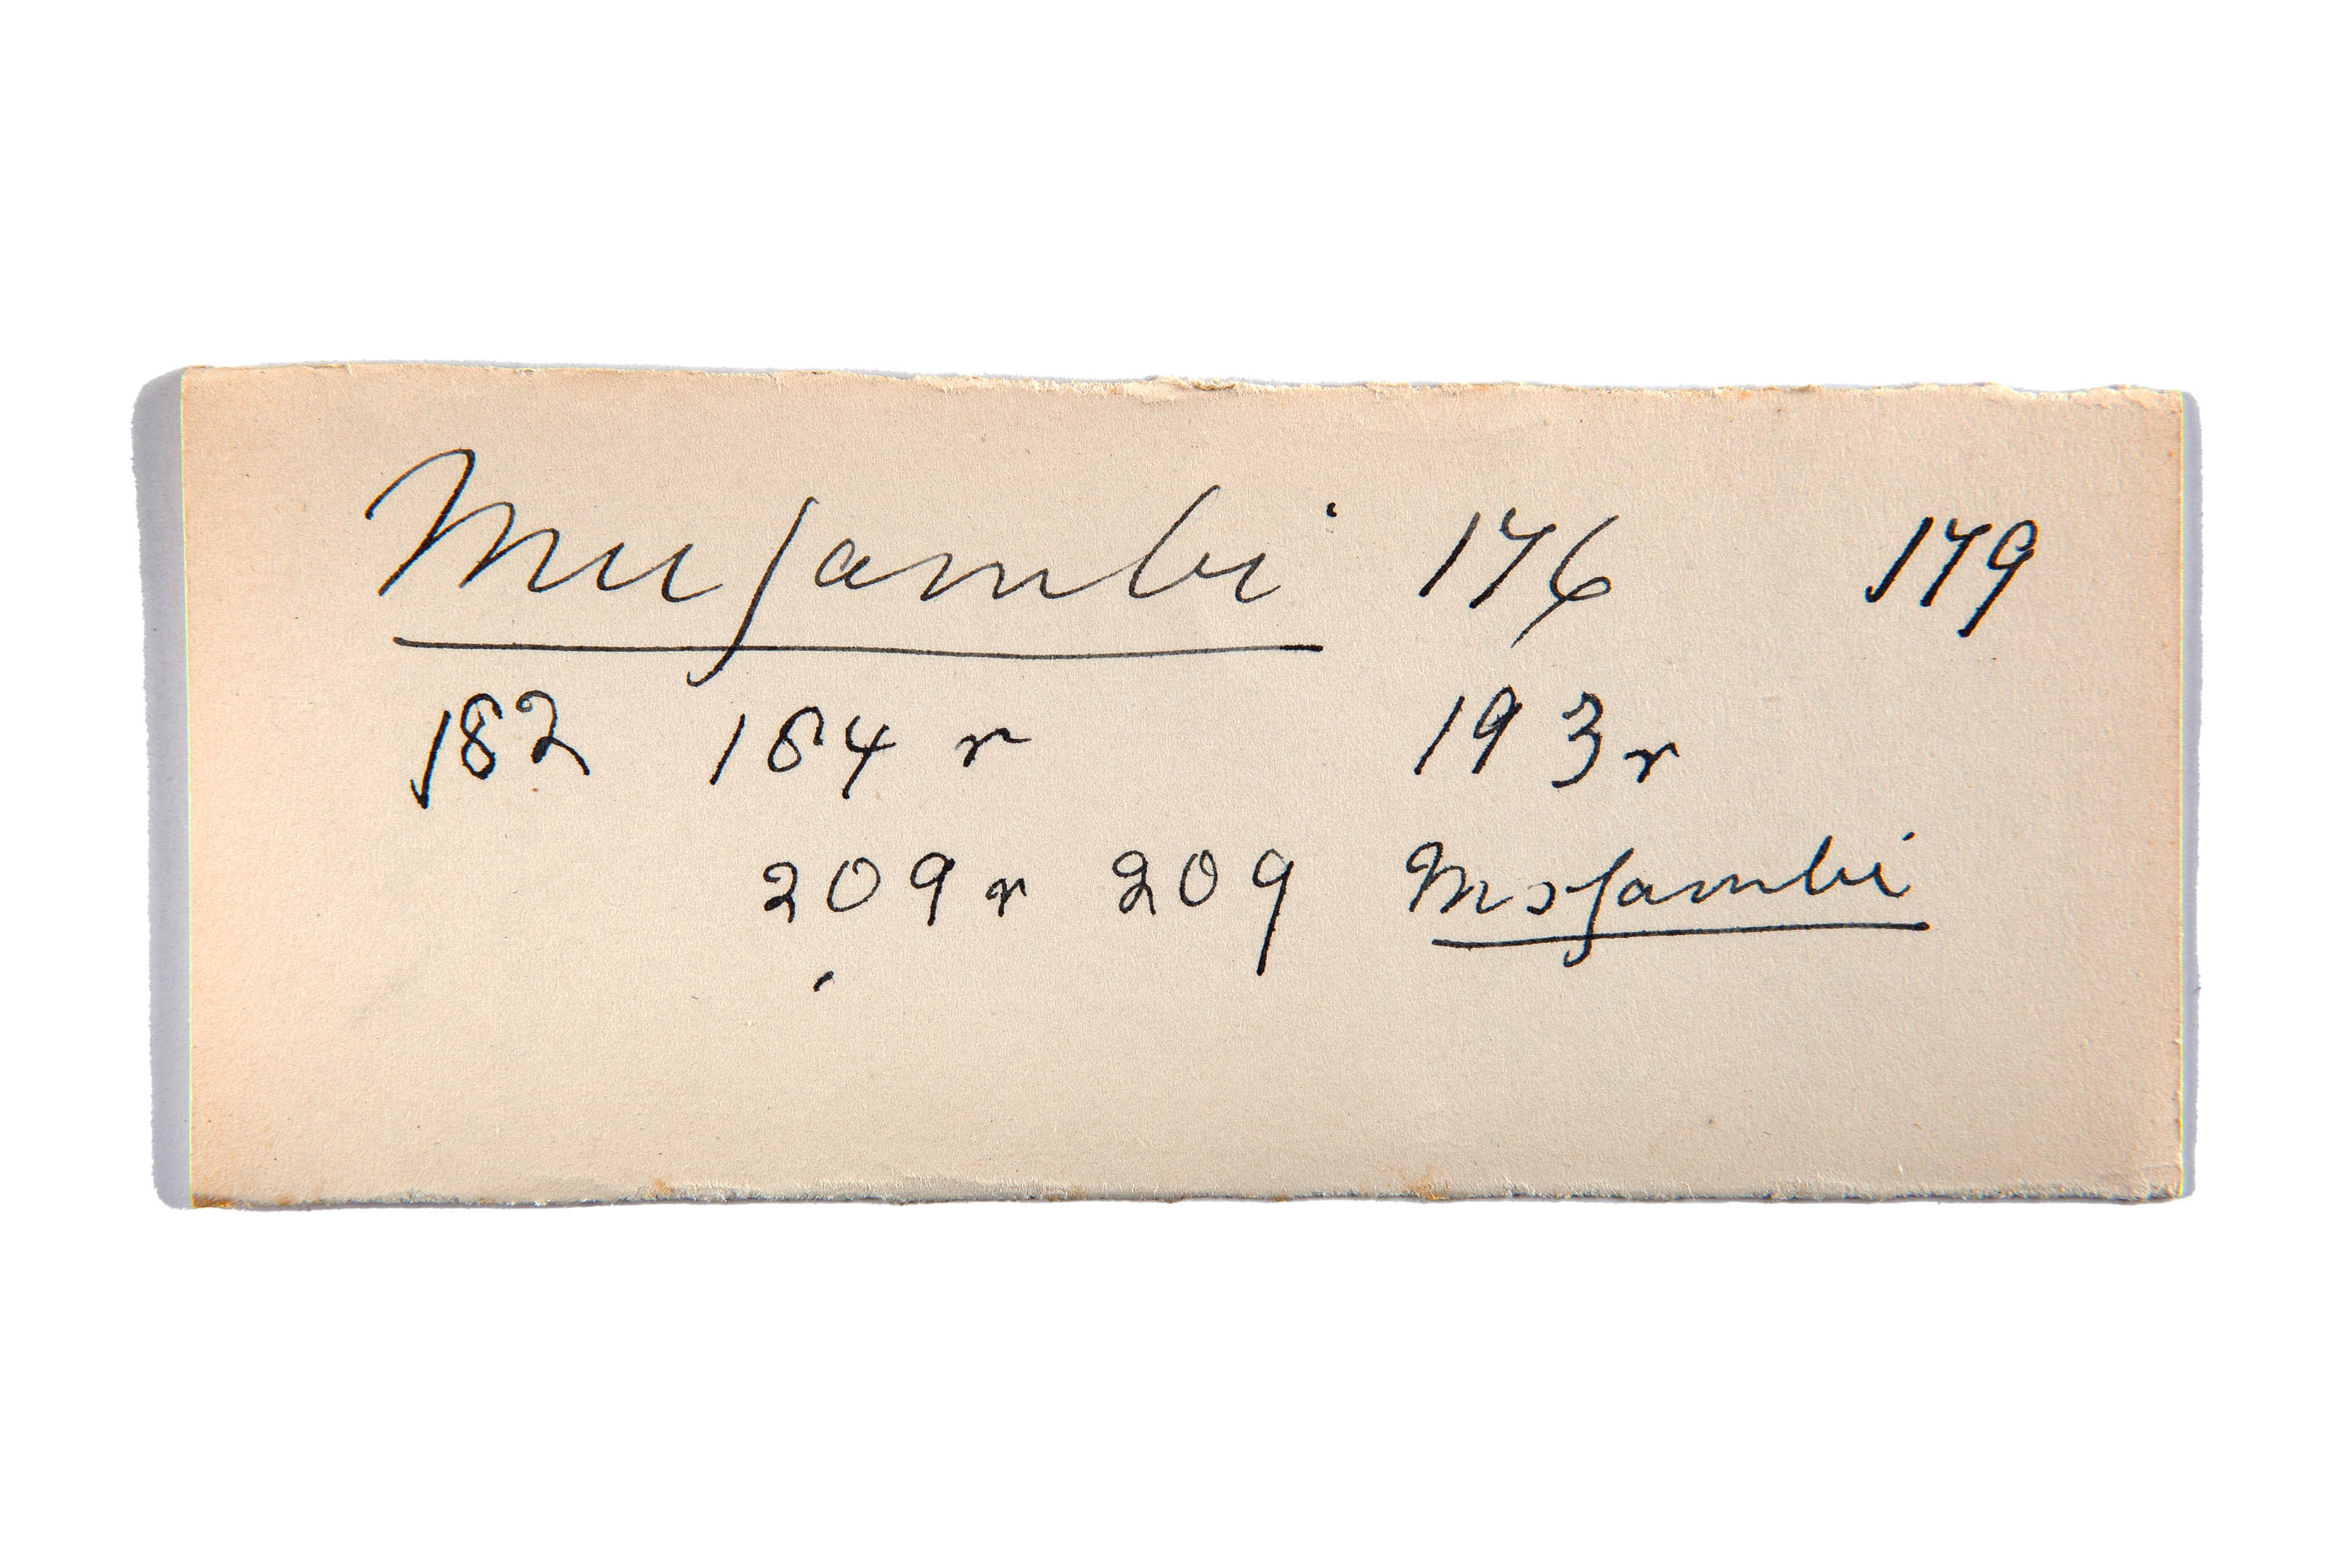 Mujambi 176 179
182 184 r 193 r
209 r 209 Msjambi